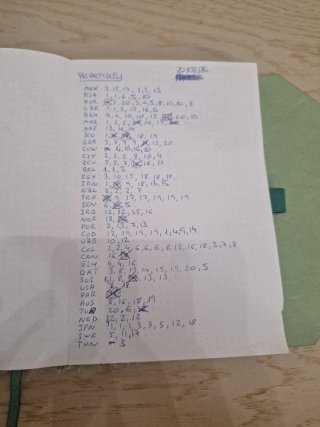 REPETIDOS
MEX 3, 15, 19, 1, 2, 13
RSA 1, 1, 6, 5, 10
KOR 3, 20, 3, 4, 5, 8, 10, 20, 8
CZE 1, 1, 2, 15, 16, 5
BRA 4, 4, 10, 10, 18, 20, 10
MAR 1, 2, 2,
HAI 13, 16, 14
SCO 1, 18, 19
GER 3, 7, 9, 9, 15, 20
CUW 6, 10, 15, 20
CIV 2, 2, 2, 8, 10, 4
ECU 5, 5, 7, 16, 13
BEL 1, 1, 2
EGY 3, 10, 15, 18, 18, 10
IRN 1, 9, 18, 13, 15
NZL 2, 2, 2, 7
FRA 9, 17, 17, 19, 19, 19
SEN 6, 5
IRQ 12, 12, 15, 16
NOR 18
POR 2, 13, 7, 13
COD 12, 19, 19, 19, 1, 4, 9, 14
UZB 10, 12
COL 2, 2, 4, 6, 6, 6, 8, 15, 16, 18, 3, 7, 8
CAN 16
BIH 4, 4, 16
QAT 3, 8, 13, 14, 15, 19, 20, 5
SUI 1, 8, 13, 13, 13
USA 18
PAR
AUS 8, 16, 18, 19
TUR 20, 6
NED 2, 2, 12
JPN 1, 1, 1, 3, 3, 5, 12, 18
SWE 5, 11, 17
TUN 3